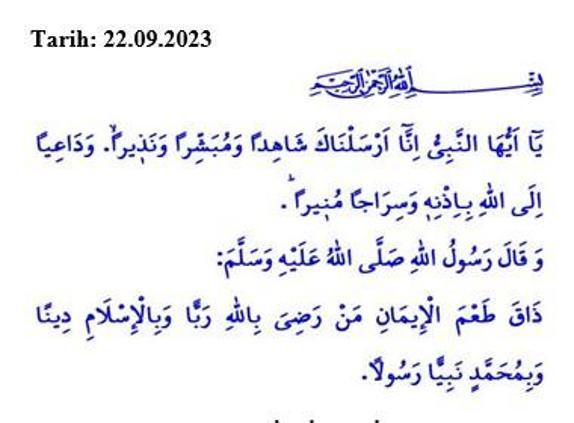 Tarih: 22.09.2023
بِسْمِ اللهِ الرَّحْمٰنِ الرَّحِيمِ
يَٓا اَيُّهَا النَّبِيُّ اِنَّٓا اَرْسَلْنَاكَ شَاهِدًا وَمُبَشِّرًا وَنَذ۪يرًاۙ. وَدَاعِيًا
اِلَى اللهِ بِاِذْنِه۪ وَسِرَاجًا مُن۪يرًاۙ.
وَ قَالَ رَسُولُ اللهِ صَلَّى اللهُ عَلَيْهِ وَسَلَّمَ:
ذَاقَ طَعْمَ الْإِيمَانِ مَنْ رَضِيَ بِاللهِ رَبًّا وَبِالْإِسْلَامِ دِينًا
وَبِمُحَمَّدٍ نَبِيًّا رَسُولًا.